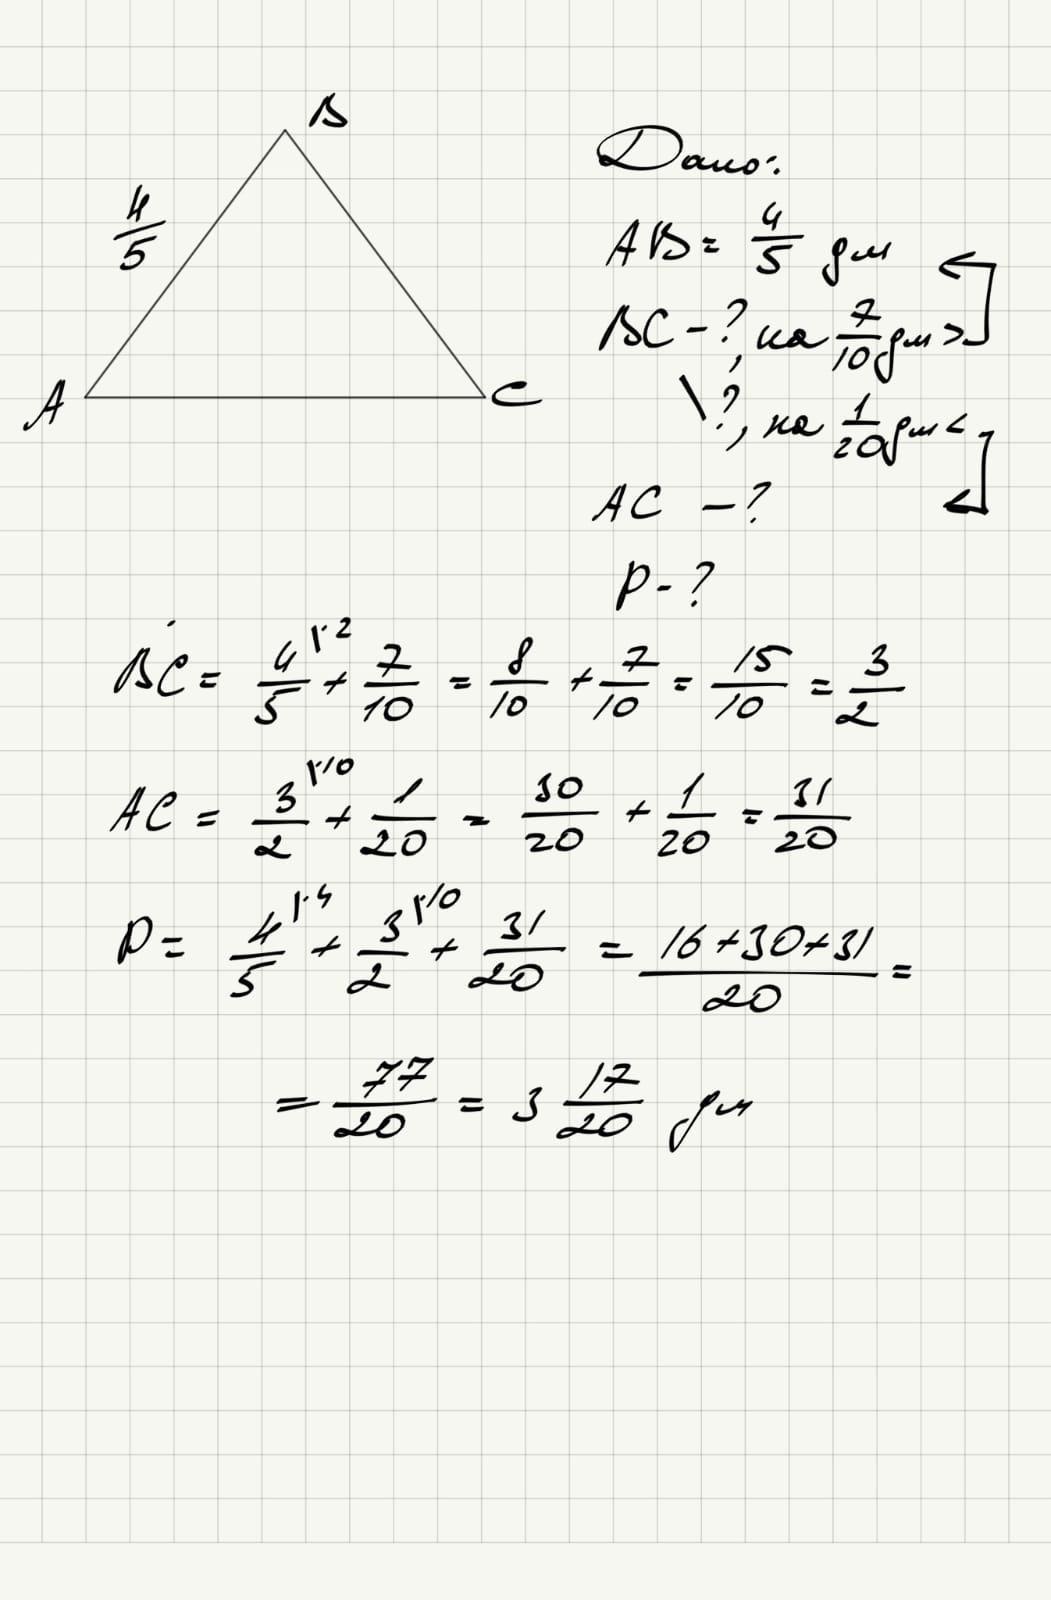 B
4/5
A
C
Дано:
AB = 4/5 дм
BC - ?, на 7/10 дм >
\ ?, на 1/20 дм <
AC - ?
P - ?
BC = 4/5 ^2 + 7/10 = 8/10 + 7/10 = 15/10 = 3/2
AC = 3/2 ^10 + 1/20 = 30/20 + 1/20 = 31/20
P = 4/5 ^4 + 3/2 ^10 + 31/20 = 16+30+31/20 =
= 77/20 = 3 17/20 дм